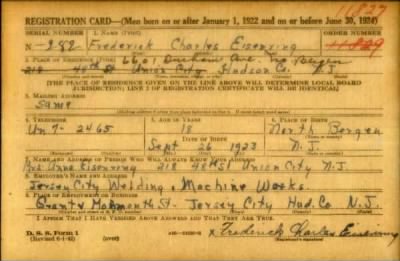 11827
REGISTRATION CARD—(Men born on or after January 1, 1922 and on or before June 30, 1924)
SERIAL NUMBER 1. NAME (Print) ORDER NUMBER
N-282 Frederick Charles Eisenring 11829
2. PLACE OF RESIDENCE (Print) 6601 Durham Ave. No. Bergen
218 48th St Union City Hudson Co. N.J.
[THE PLACE OF RESIDENCE GIVEN ON THE LINE ABOVE WILL DETERMINE LOCAL BOARD
JURISDICTION; LINE 2 OF REGISTRATION CERTIFICATE WILL BE IDENTICAL]
3. MAILING ADDRESS
Same
4. TELEPHONE 5. AGE IN YEARS 6. PLACE OF BIRTH
Un 7-2465 18 North Bergen
DATE OF BIRTH
Sept 26 1923 N.J.
7. NAME AND ADDRESS OF PERSON WHO WILL ALWAYS KNOW YOUR ADDRESS
Mrs. Anna Eisenring 218 48th St Union City N.J.
8. EMPLOYER'S NAME AND ADDRESS
Jersey City Welding & Machine Works
9. PLACE OF EMPLOYMENT OR BUSINESS
Grant & Jersey City Hud. Co. N.J.
I AFFIRM THAT I HAVE VERIFIED ABOVE ANSWERS AND THAT THEY ARE TRUE.
D. S. S. Form 1
(Revised 6-1-42) (over) x Frederick Charles Eisenring
(Registrant's signature)